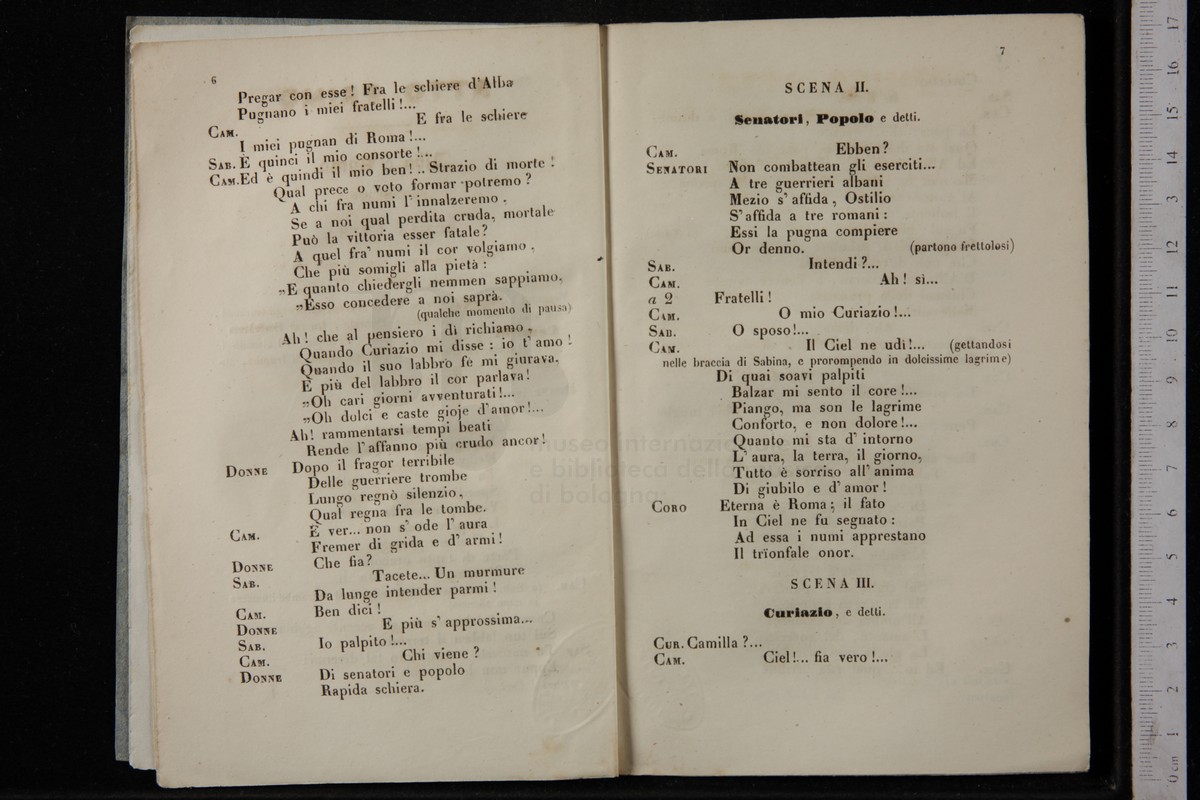 6
Pregar con esse! Fra le schiere d'Alba
Pugnano i miei fratelli!...
CAM. E fra le schiere
I miei pugnan di Roma!...
SAB. E quinci il mio consorte!...
CAM. Ed è quindi il mio ben!.. Strazio di morte!
Qual prece o voto formar potremo?
A chi fra numi l'innalzeremo,
Se a noi qual perdita cruda, mortale
Può la vittoria esser fatale?
A quel fra' numi il cor volgiamo,
Che più somigli alla pietà:
„E quanto chiedergli nemmen sappiamo,
„Esso concedere a noi saprà.
(qualche momento di pausa)
Ah! che al pensiero i dì richiamo,
Quando Curiazio mi disse: io t'amo!
Quando il suo labbro fè mi giurava,
E più del labbro il cor parlava!
„Oh cari giorni avventurati!...
„Oh dolci e caste gioje d'amor!...
Ah! rammentarsi tempi beati
Rende l'affanno più crudo ancor!
DONNE Dopo il fragor terribile
Delle guerriere trombe
Lungo regnò silenzio,
Qual regna fra le tombe.
CAM. È ver... non s'ode l'aura
Fremer di grida e d'armi!
DONNE Che fia?
SAB. Tacete... Un murmure
Da lunge intender parmi!
CAM. Ben dici!
DONNE E più s'approssima...
SAB. Io palpito!...
CAM. Chi viene?
DONNE Di senatori e popolo
Rapida schiera.
7
SCENA II.
Senatori, Popolo e detti.
CAM. Ebben?
SENATORI Non combattean gli eserciti...
A tre guerrieri albani
Mezio s'affida, Ostilio
S'affida a tre romani:
Essi la pugna compiere
Or denno. (partono frettolosi)
SAB. Intendi?...
CAM. Ah! sì...
a 2 Fratelli!
CAM. O mio Curiazio!...
SAB. O sposo!...
CAM. Il Ciel ne udì!... (gettandosi
nelle braccia di Sabina, e prorompendo in dolcissime lagrime)
Di quai soavi palpiti
Balzar mi sento il core!...
Piango, ma son le lagrime
Conforto, e non dolore!...
Quanto mi sta d'intorno
L'aura, la terra, il giorno,
Tutto è sorriso all'anima
Di giubilo e d'amor!
CORO Eterna è Roma; il fato
In Ciel ne fu segnato:
Ad essa i numi apprestano
Il trïonfale onor.
SCENA III.
Curiazio, e detti.
CUR. Camilla?...
CAM. Ciel!... fia vero!...
museo internazio
e biblioteca della
di bologna
0 cm 1 2 3 4 5 6 7 8 9 10 11 12 13 14 15 16 17